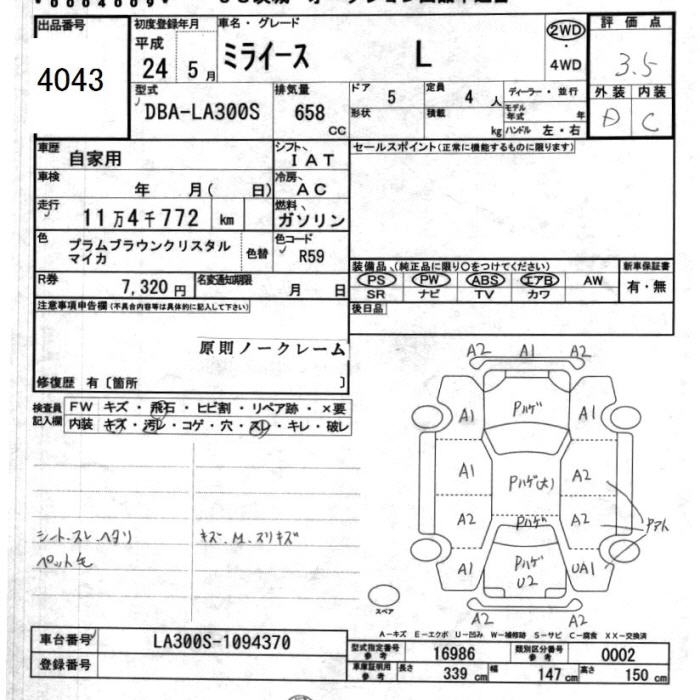 出品番号
4043
初度登録年月
平成
24 5 月
車名・グレード
ミライース L
2WD
・
4WD
評価点
3.5
外装 内装
D C
型式
DBA-LA300S
排気量
658
CC
ドア 5
定員 4 人
形状
積載 kg
ディーラー・並行
モデル年式 年
ハンドル 左・右
車歴
自家用
シフト
IAT
セールスポイント(正常に機能するものに限ります)
車検
年 月( 日)
冷房
AC
走行
11万4千772 km
燃料
ガソリン
色
プラムブラウンクリスタル
マイカ
色替
色コード
R59
装備品、(純正品に限り○をつけてください)
PS PW ABS エアB AW
SR ナビ TV カワ
新車保証書
有・無
R券
7,320 円
名変通知期限
月 日
後日品
注意事項申告欄(不具合内容等は具体的に記入して下さい)
原則ノークレーム
修復歴 有〔箇所 〕
検査員
記入欄
FW キズ・飛石・ヒビ割・リペア跡・×要
内装 キズ・汚レ・コゲ・穴・スレ・キレ・破レ
シートスレ ヘタリ
ペット毛
キズ、M、スリキズ
A2 A1 A2
A1 Pハゲ A1
A1 Pハゲ(大) A2
A2 Pハゲ A2
A1 Pハゲ U2 UA1
A2 A2
スペア
A-キズ E-エクボ U-凹み W-補修跡 S-サビ C-腐食 XX-交換済
車台番号
LA300S-1094370
登録番号
型式指定番号
参考
16986
類別区分番号
参考
0002
車庫証明用
参考
長さ 339 cm 幅 147 cm 高さ 150 cm